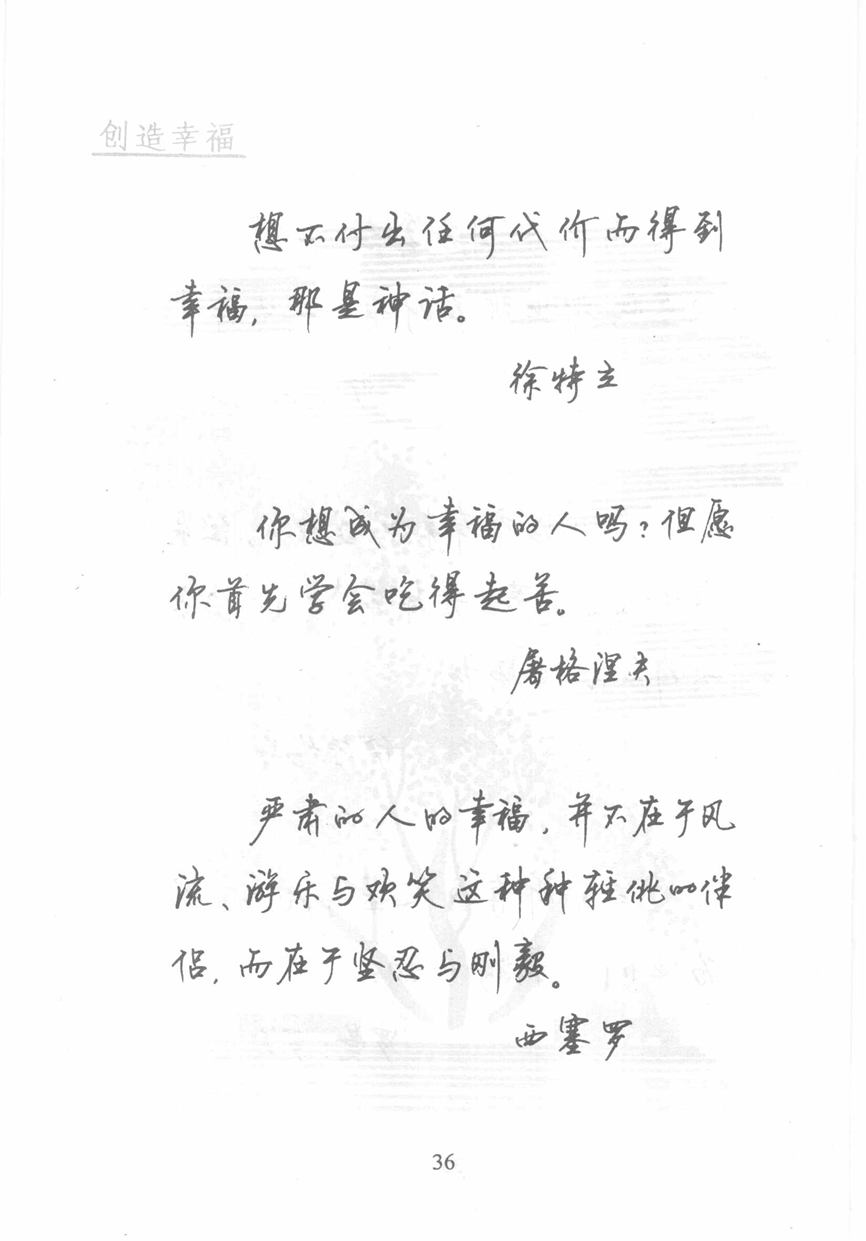 创造幸福
想不付出任何代价而得到
幸福，那是神话。
徐特立
你想成为幸福的人吗？但愿
你首先学会吃得起苦。
屠格涅夫
严肃的人的幸福，并不在于风
流、游乐与欢笑这种种轻佻的伴
侣，而在于坚忍与刚毅。
西塞罗
36